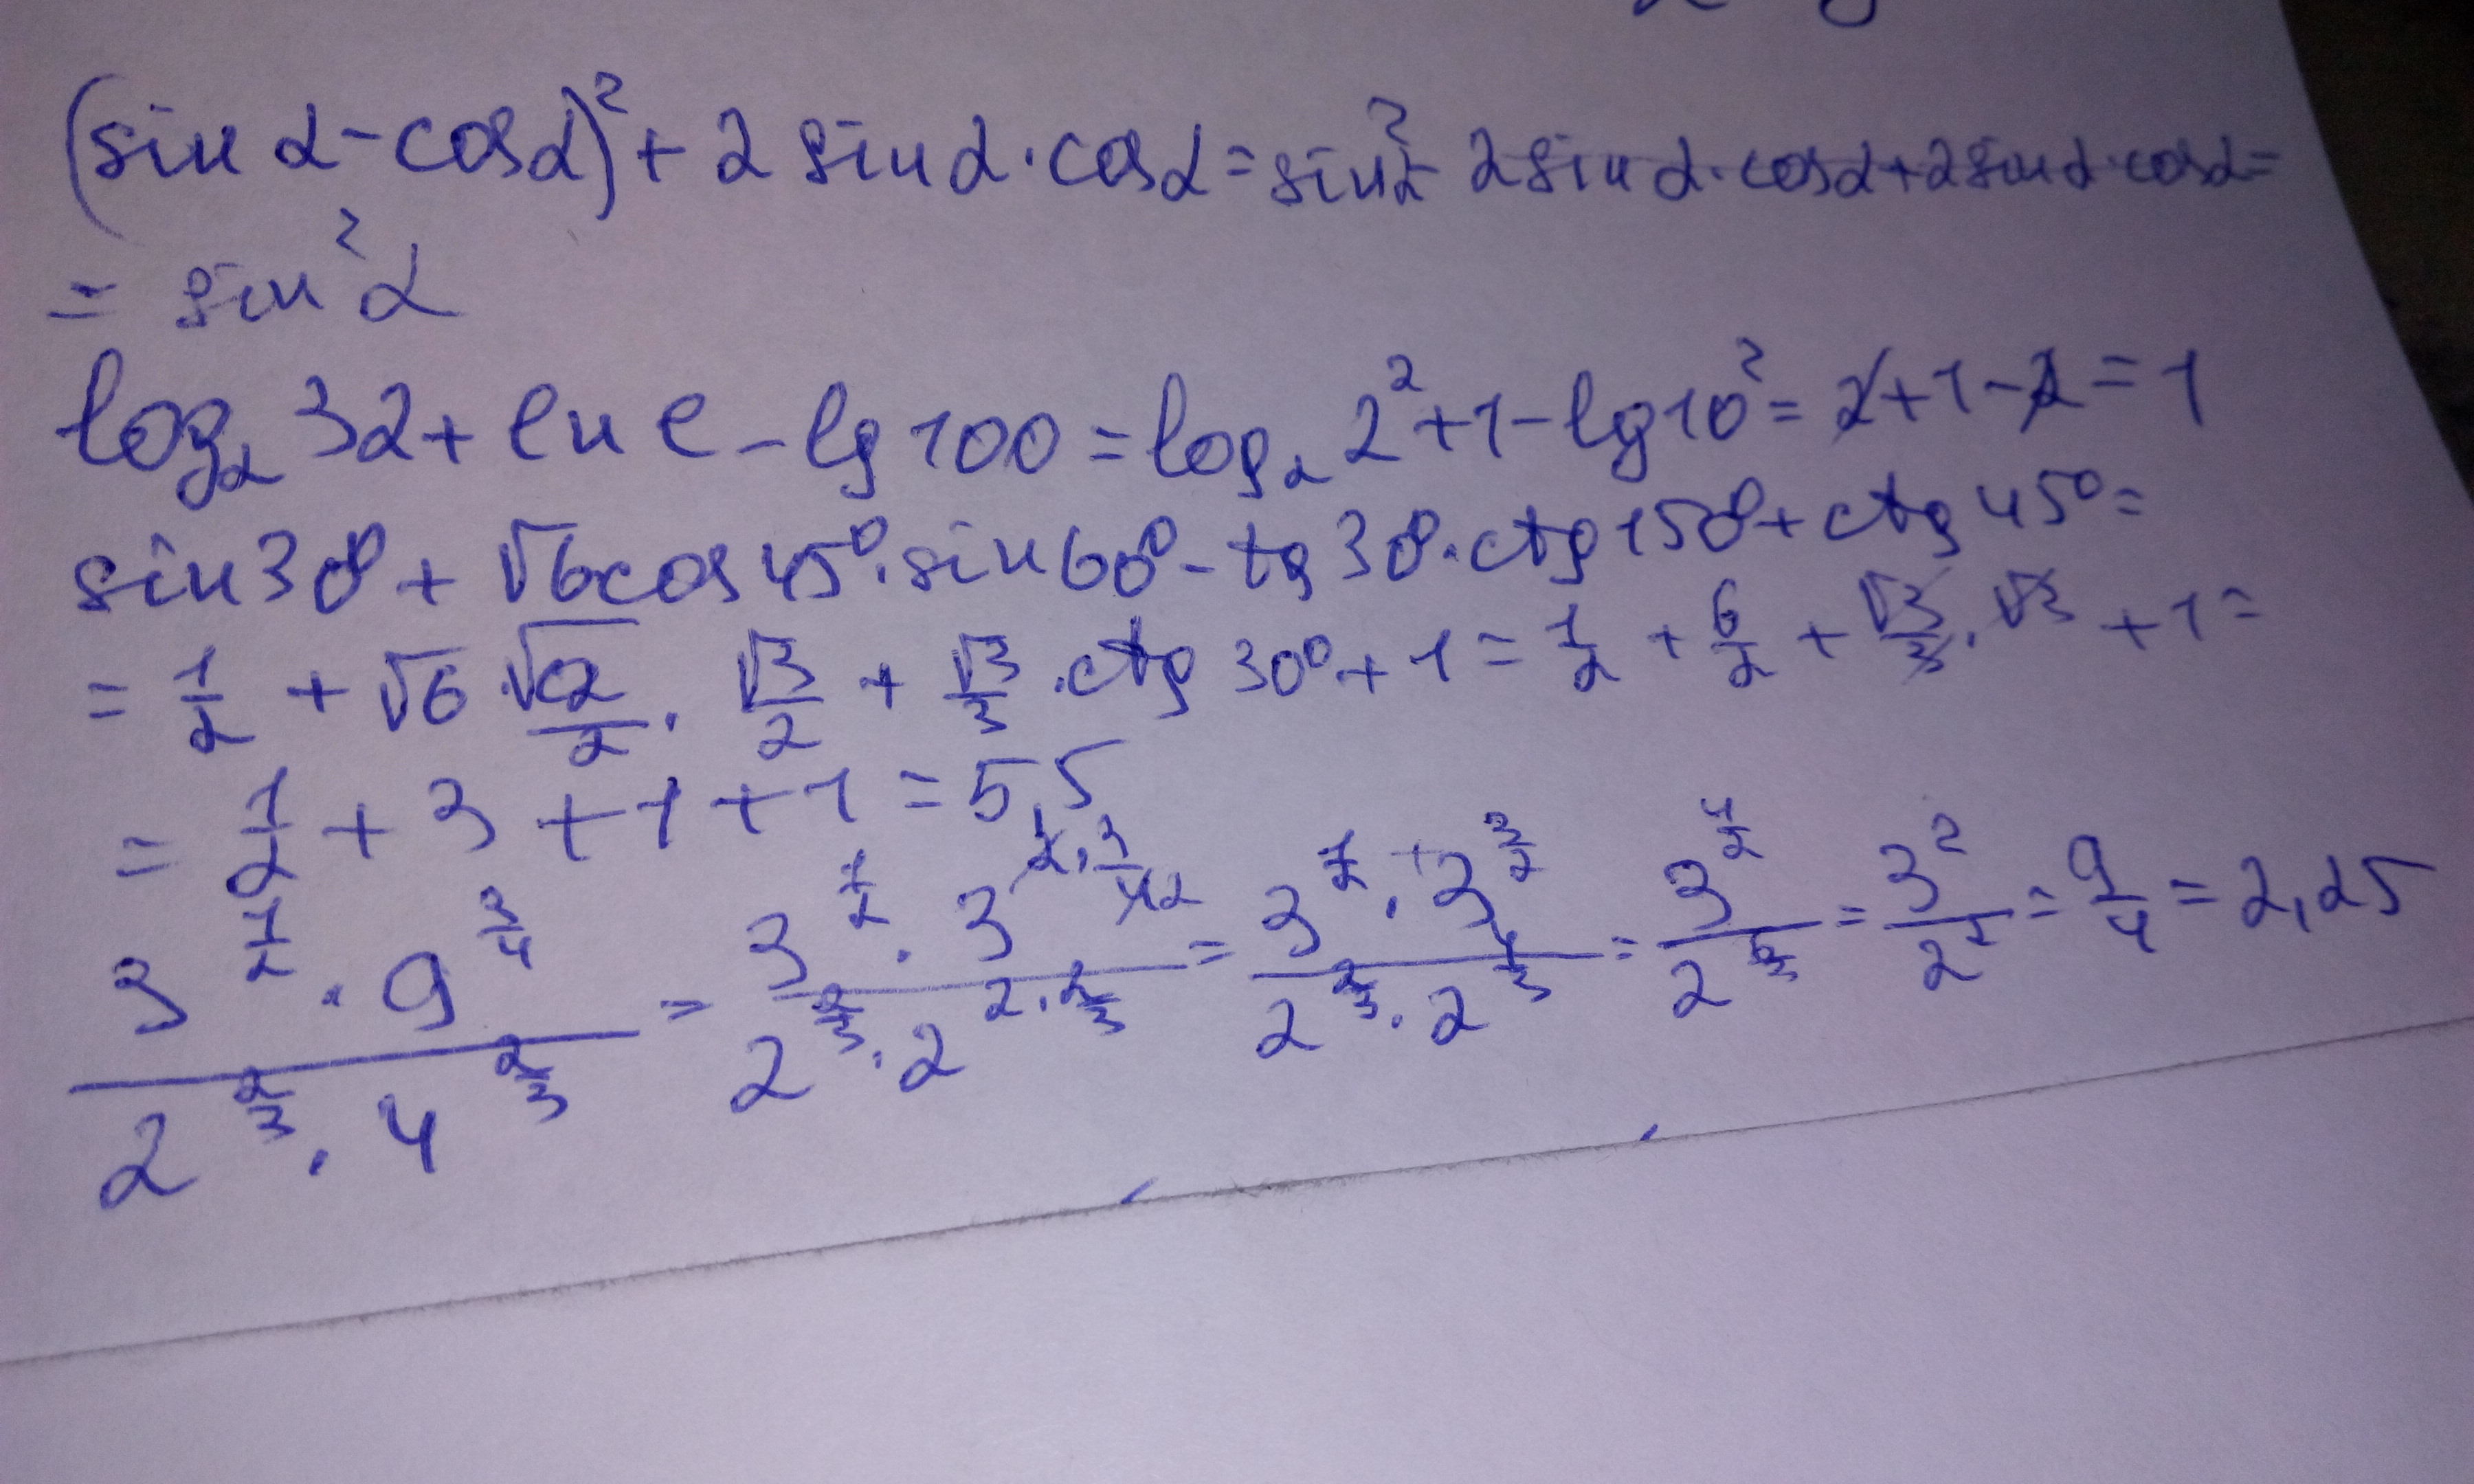 (sin α - cos α)² + 2 sin α · cos α = sin²α - 2 sin α · cos α + 2 sin α · cos α =
= sin²α
log₂ 32 + ln e - lg 100 = log₂ 2² + 1 - lg 10² = 2 + 1 - 2 = 1
sin 30° + √6 cos 45° · sin 60° - tg 30° · ctg 150° + ctg 45° =
= 1/2 + √6 · √2/2 · √3/2 + √3/3 · ctg 30° + 1 = 1/2 + 6/2 + √3/3 · √3 + 1 =
= 1/2 + 3 + 1 + 1 = 5,5
(3^(1/2) · 9^(3/4)) / (2^(2/3) · 4^(2/3)) = (3^(1/2) · 3^(2 · 3/42)) / (2^(2/3) · 2^(2 · 2/3)) = (3^(1/2) · 3^(3/2)) / (2^(2/3) · 2^(4/3)) = 3^(4/2) / 2^(6/3) = 3² / 2² = 9/4 = 2,25